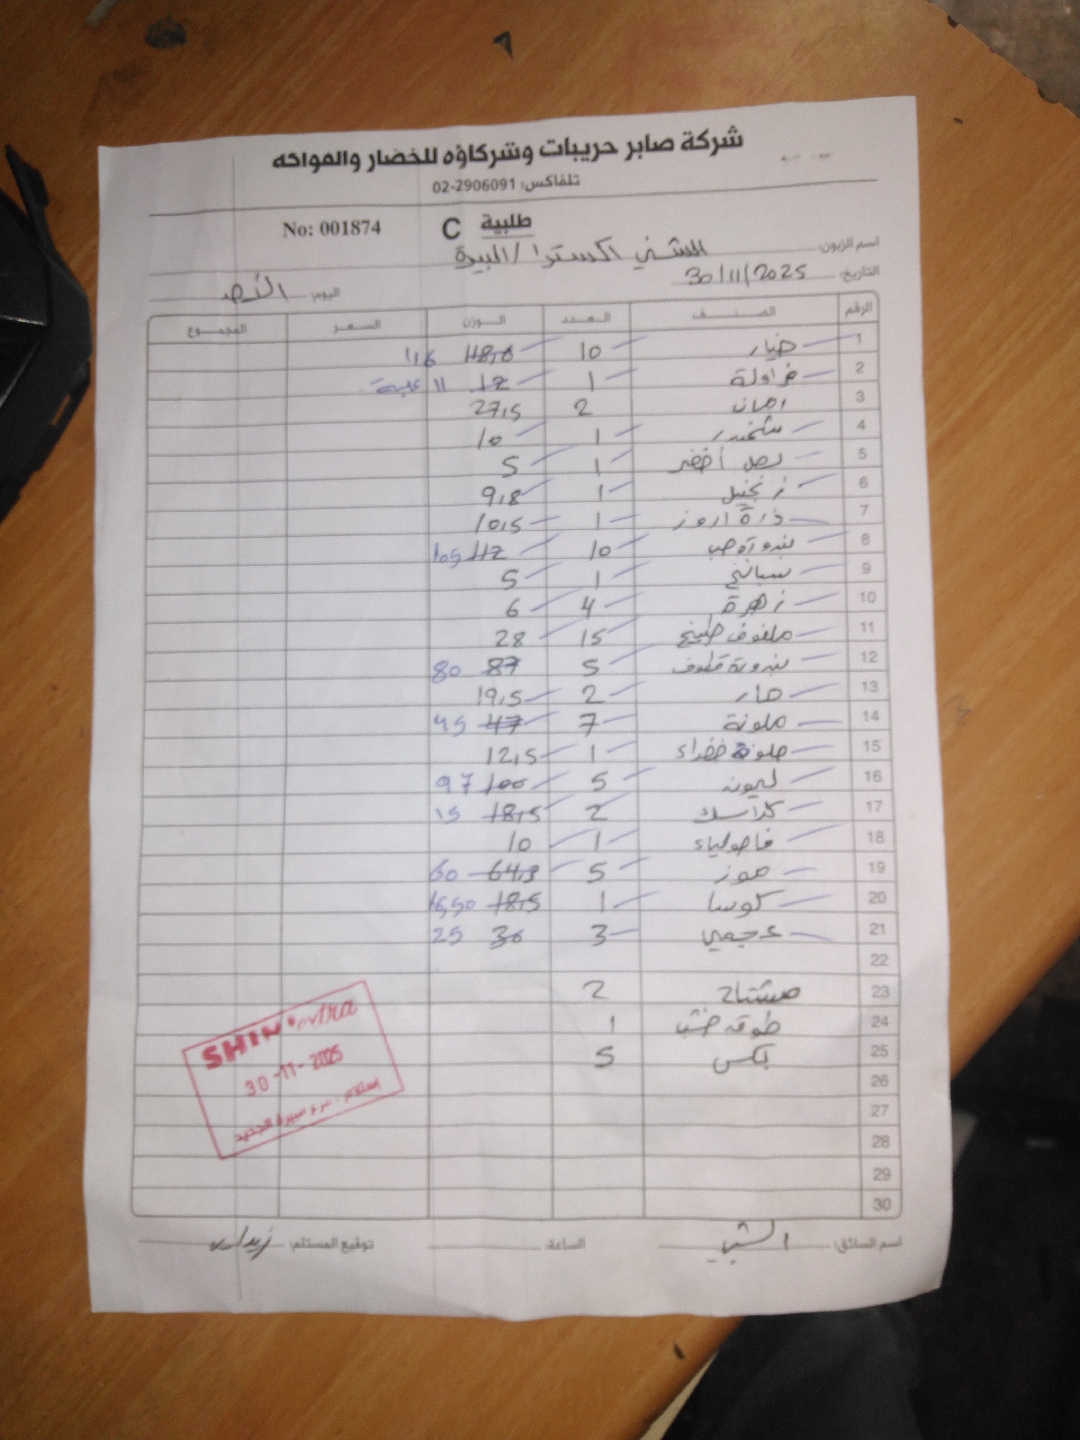 شركة صابر حريبات وشركاؤه للخضار والفواكه
تلفاكس: 02-2906091
طلبية C No: 001874
اسم الزبون: الشني اكسترا / البيرة
التاريخ: 30/11/2025 اليوم: الأحد
الرقم الصنف العدد الوزن السعر المجموع
1 خيار 10 118,6 116
2 فراولة 1 12 11 علبة
3 رمان 2 27,5
4 شمندر 1 10
5 بصل أخضر 1 5
6 زنجبيل 1 9,8
7 ذرة اروز 1 10,5
8 بندورة حب 10 112 105
9 سبانخ 1 5
10 زهرة 4 6
11 ملفوف طبيخ 15 28
12 بندورة قطوف 5 87 80
13 حار 2 19,5
14 ملونة 7 47 45
15 ملونة خضراء 1 12,5
16 ليمون 5 100 97
17 2 18,5 15
18 فاصولياء 1 10
19 موز 5 64,3 60
20 كوسا 1 18,5 16,50
21 عجمي 3 30 25
22
23 مشتاح 2
24 خشب 1
25 بكس 5
26
27
28
29
30
SHINI extra
30-11-2025
استلام - فرع البيرة الجديد
اسم السائق: الساعة: توقيع المستلم: